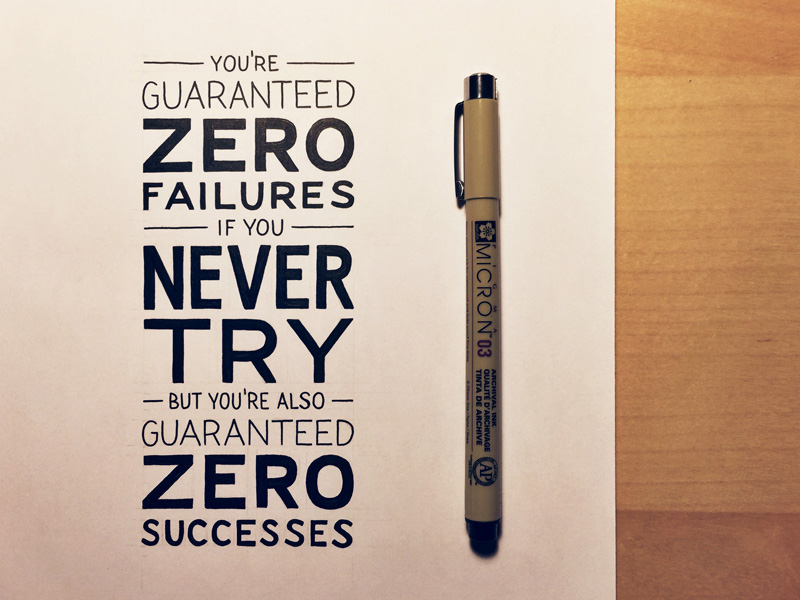 YOU'RE
GUARANTEED
ZERO
FAILURES
IF YOU
NEVER
TRY
BUT YOU'RE ALSO
GUARANTEED
ZERO
SUCCESSES
PIGMA
MICRON™ 03
ARCHIVAL INK
QUALITÉ D'ARCHIVAGE
TINTA DE ARCHIVE
AP